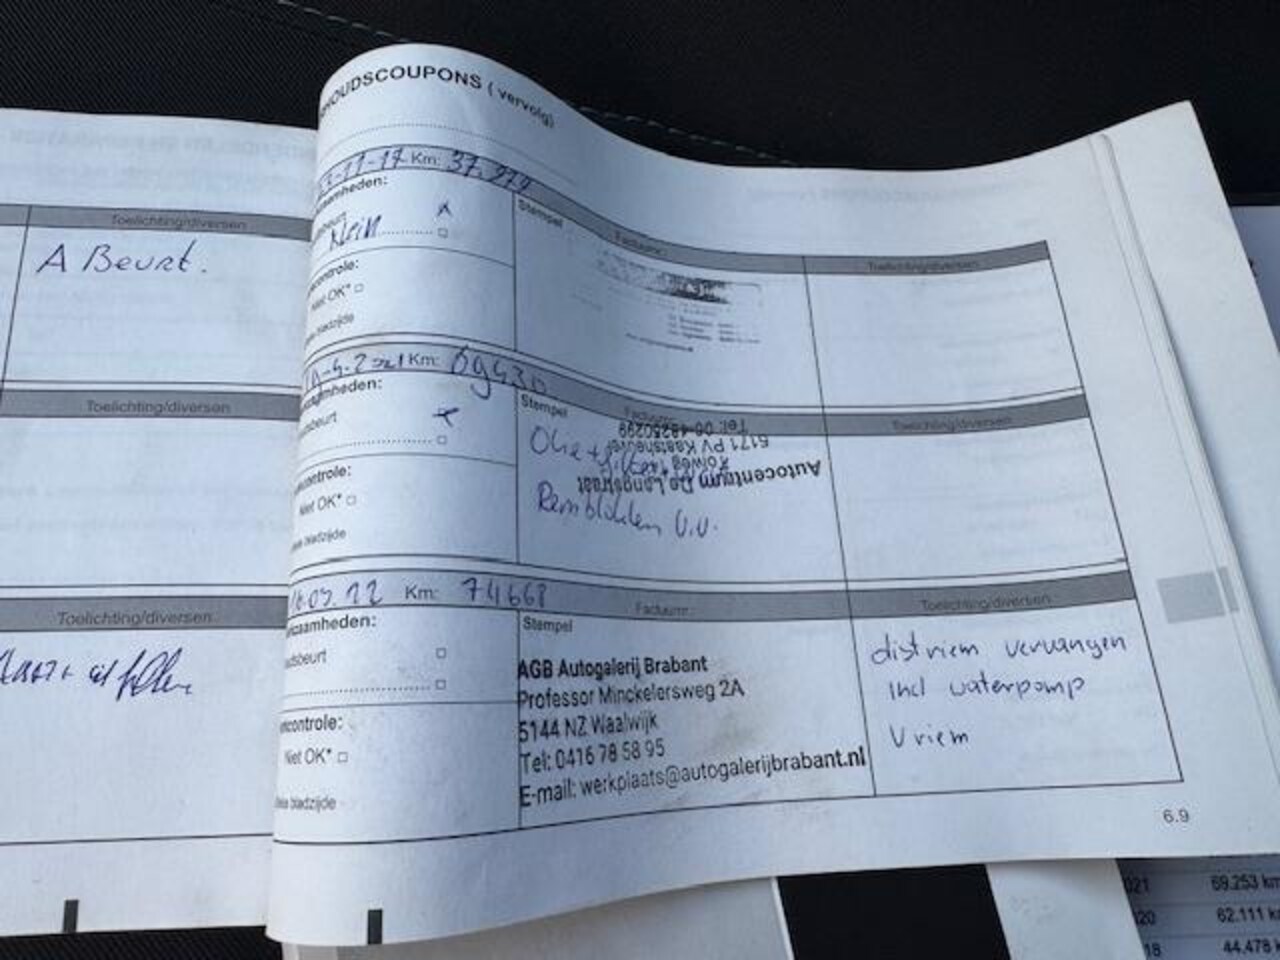 Toelichting/diversen
A Beurt.
Toelichting/diversen
Toelichting/diversen
HOUDSCOUPONS ( vervolg)
-11-17 Km: 37.979
amheden:
beurt
Klein
controle:
Niet OK*
bladzijde
Stempel
Factuurnr.:
Toelichting/diversen
-4-2021 Km: 69430
amheden:
beurt
controle:
Niet OK*
bladzijde
Stempel
Factuurnr.:
Toelichting/diversen
Olie + filter
Remblokken V.V.
Autocentrum De Langstraat
Roiweg
5171 PV Kaatsheuvel
Tel: 06-48250299
16.03.22 Km: 74668
kzaamheden:
udsbeurt
controle:
Niet OK*
bladzijde
Factuurnr.:
Stempel
AGB Autogalerij Brabant
Professor Minckelersweg 2A
5144 NZ Waalwijk
Tel: 0416 78 58 95
E-mail: werkplaats@autogalerijbrabant.nl
Toelichting/diversen
distriem vervangen
incl waterpomp
V riem
6.9
021 69.253 km
20 62.111 k
18 44.478 k